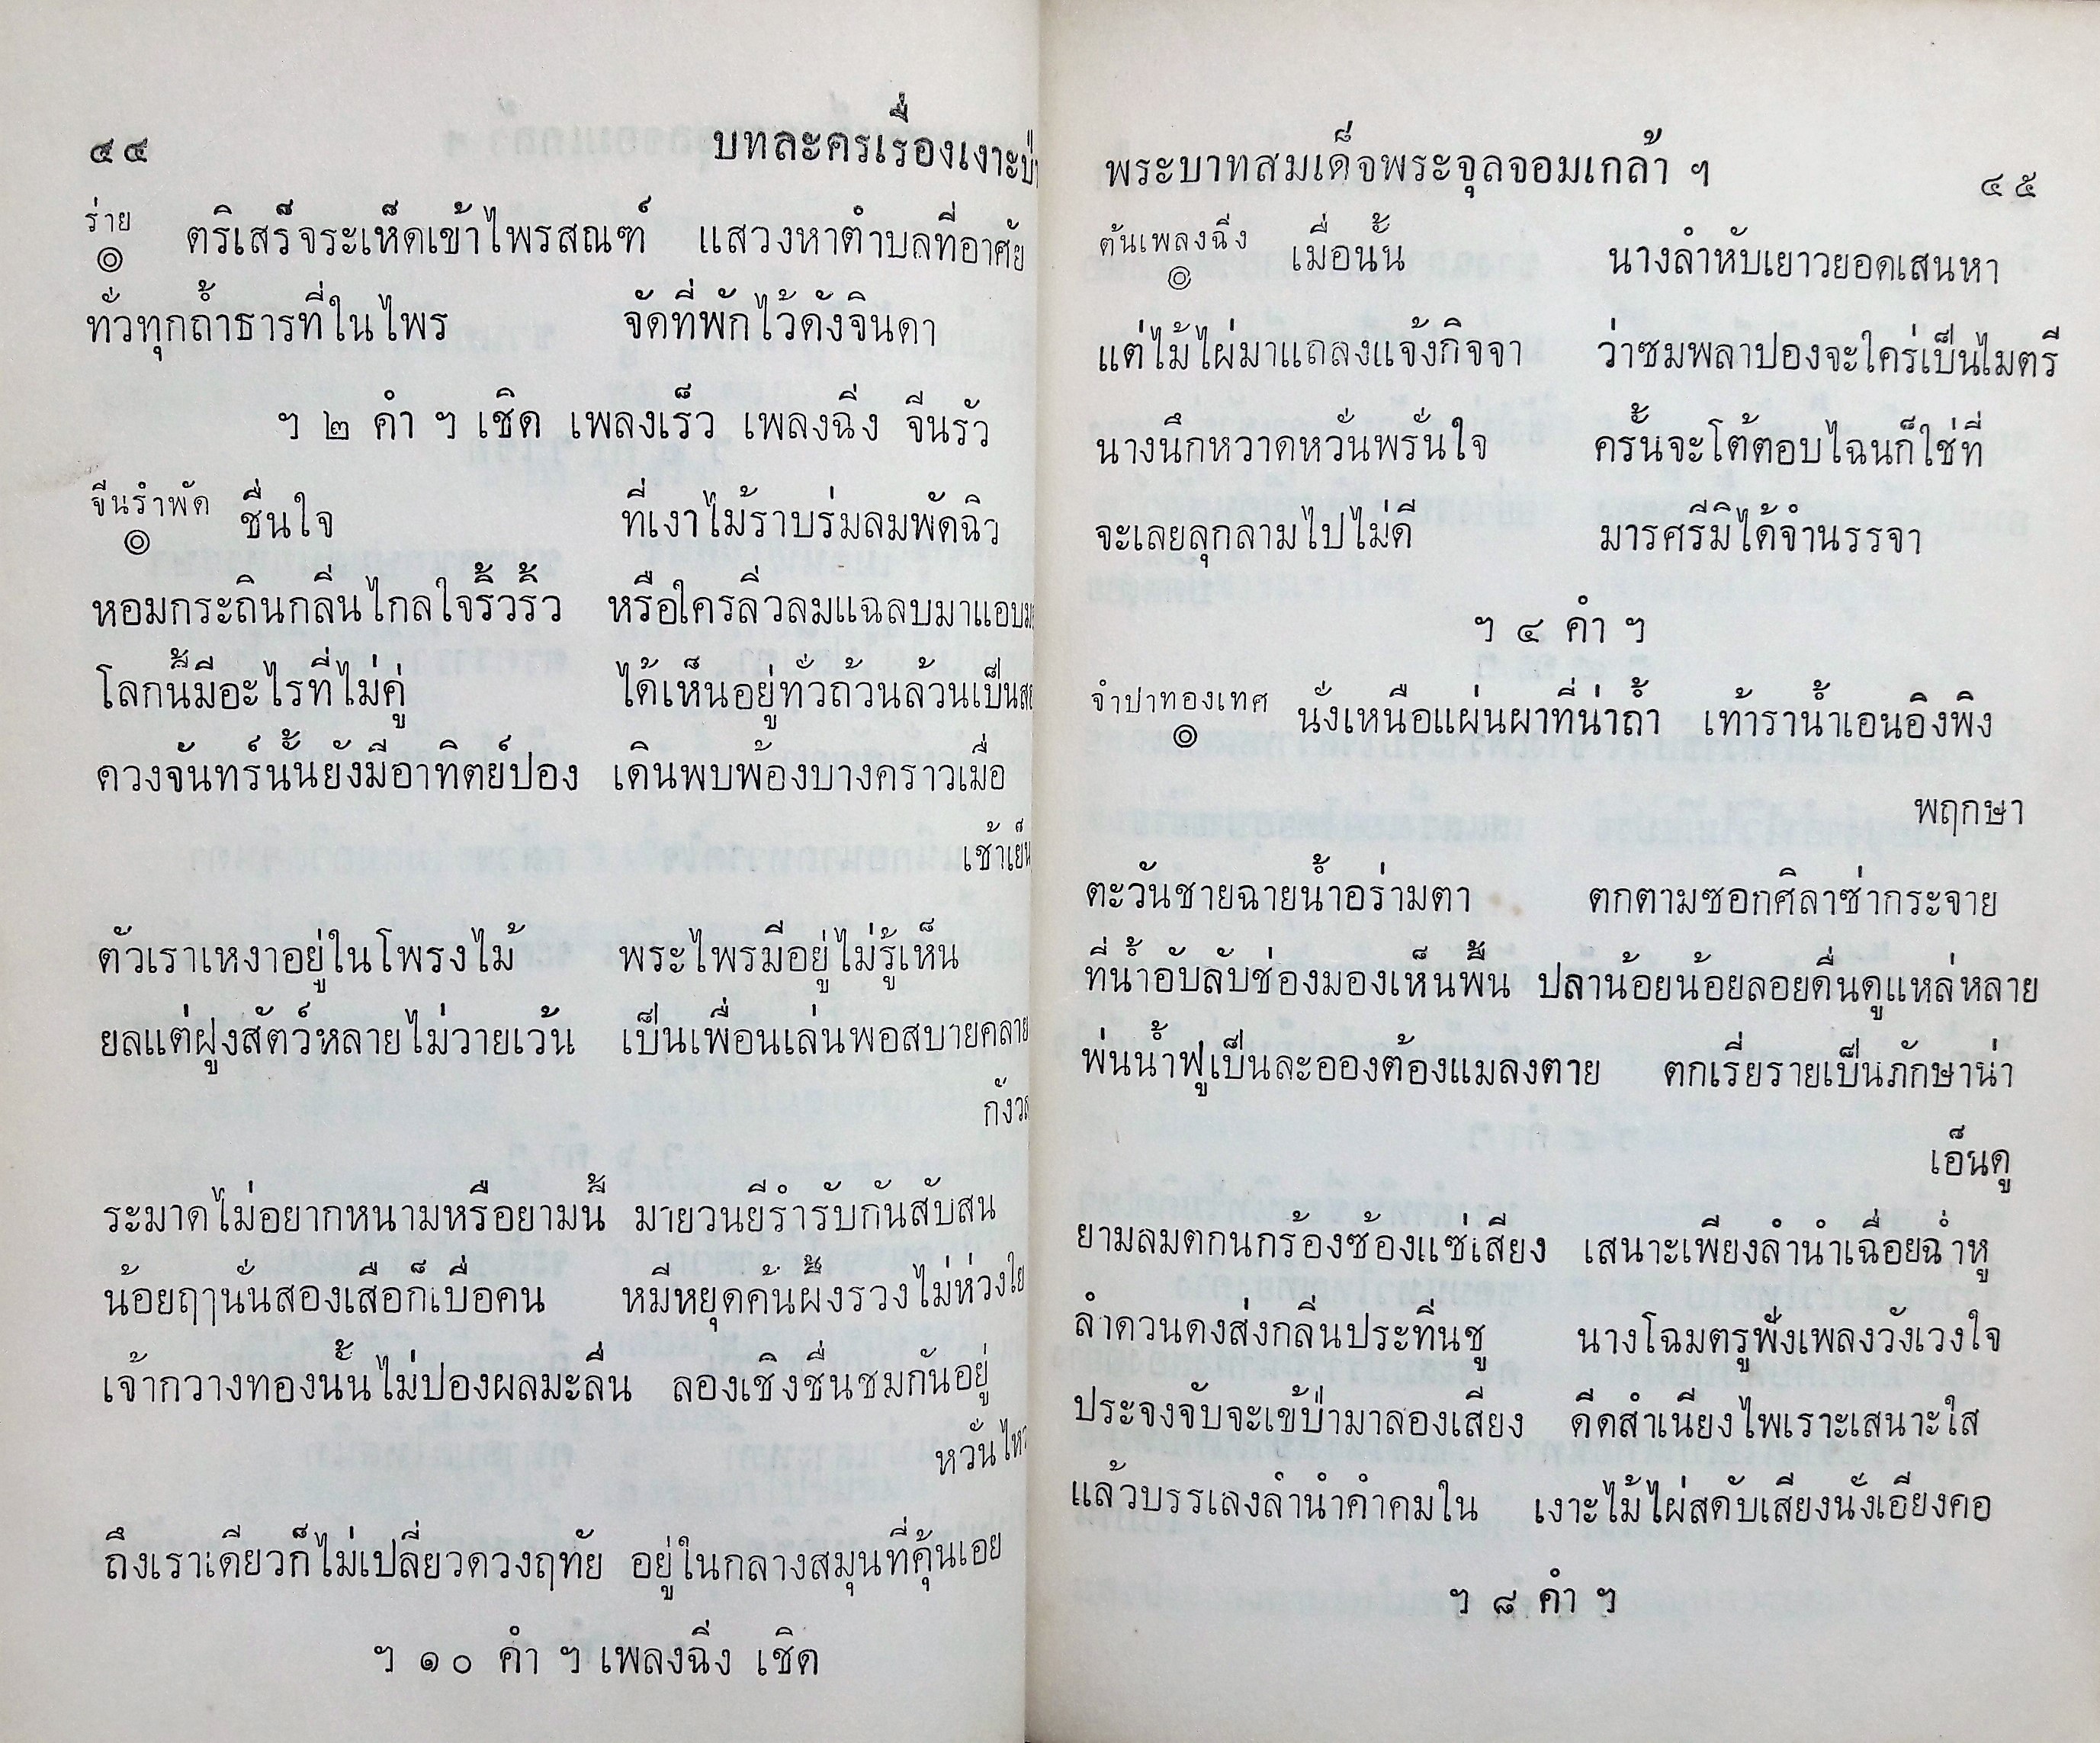 ๔๔ บทละครเรื่องเงาะป่า
ร่าย
๏ ตริเสร็จระเห็ดเข้าไพรสณฑ์ แสวงหาตำบลที่อาศัย
ทั่วทุกถ้ำธารที่ในไพร จัดที่พักไว้ดังจินดา
ฯ ๒ คำ ฯ เชิด เพลงเร็ว เพลงฉิ่ง จีนรัว
จีนรำพัด
๏ ชื่นใจ ที่เงาไม้ราบร่มลมพัดฉิว
หอมกระถินกลิ่นไกลใจริ้วริ้ว หรือใครลิ่วลมแฉลบมาแอบ
โลกนี้มีอะไรที่ไม่คู่ ได้เห็นอยู่ทั่วถ้วนล้วนเป็น
ดวงจันทร์นั้นยังมีอาทิตย์ปอง เดินพบพ้องบางคราวเมื่อ
เช้าเย็น
ตัวเราเหงาอยู่ในโพรงไม้ พระไพรมีอยู่ไม่รู้เห็น
ยลแต่ฝูงสัตว์หลายไม่วายเว้น เป็นเพื่อนเล่นพอสบายคลาย
กังวล
ระมาดไม่อยากหนามหรือยามนี้ มายวนยีรำรับกันสับสน
น้อยฤๅนั่นสองเสือก็เบื่อคน หมีหยุดค้นผึ้งรวงไม่ห่วงใย
เจ้ากวางทองนั้นไม่ปองผลมะลื่น ลองเชิงชื่นชมกันอยู่
หวั่นไหว
ถึงเราเดียวก็ไม่เปลี่ยวดวงฤทัย อยู่ในกลางสมุนที่คุ้นเอย
ฯ ๑๐ คำ ฯ เพลงฉิ่ง เชิด
พระบาทสมเด็จพระจุลจอมเกล้า ฯ ๔๕
ต้นเพลงฉิ่ง
๏ เมื่อนั้น นางลำหับเยาวยอดเสนหา
แต่ไม้ไผ่มาแถลงแจ้งกิจจา ว่าซมพลาปองจะใคร่เป็นไมตรี
นางนึกหวาดหวั่นพรั่นใจ ครั้นจะโต้ตอบไฉนก็ใช่ที่
จะเลยลุกลามไปไม่ดี มารศรีมิได้จำนรรจา
ฯ ๔ คำ ฯ
จำปาทองเทศ
๏ นั่งเหนือแผ่นผาที่น่าถ้ำ เท้าราน้ำเอนอิงพิง
พฤกษา
ตะวันชายฉายน้ำอร่ามตา ตกตามซอกศิลาซ่ากระจาย
ที่น้ำอับลับช่องมองเห็นพื้น ปลาน้อยน้อยลอยดื่นดูแหล่หลาย
พ่นน้ำฟูเป็นละอองต้องแมลงตาย ตกเรี่ยรายเป็นภักษาน่า
เอ็นดู
ยามลมตกนกร้องซ้องแซ่เสียง เสนาะเพียงลำนำเฉื่อยฉ่ำหู
ลำดวนดงส่งกลิ่นประทิ่นชู นางโฉมตรูฟังเพลงวังเวงใจ
ประจงจับจะเข้ป่ามาลองเสียง ดีดสำเนียงไพเราะเสนาะใส
แล้วบรรเลงลำนำคำคมใน เงาะไม้ไผ่สดับเสียงนั่งเอียงคอ
ฯ ๘ คำ ฯ